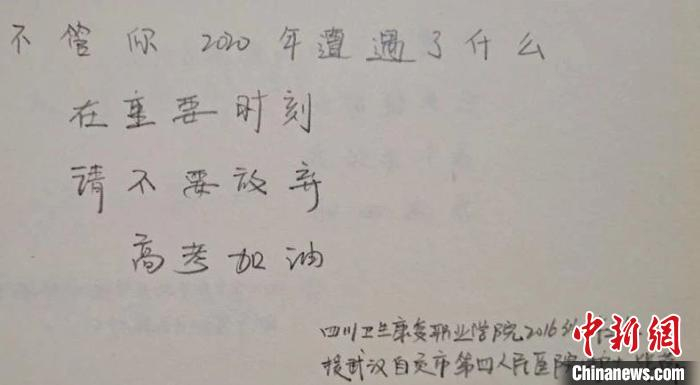 不管你 2020 年遭遇了什么
在重要时刻
请不要放弃
高考加油
四川卫生康复职业学院2016
援武汉自贡市第四人民医院
中新网
Chinanews.com